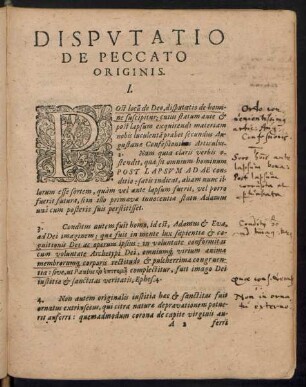 DISPVTATIO
DE PECCATO
ORIGINIS.
I.
POst locũ de Deo, disputatio de homi-
ne suscipitur: cuius statum ante &
post lapsum exquirendi materiam
nobis luculentā præbet secundus
Augustanæ Confessionis Articulus.
2. Nam quia claris verbis o-
stendit, quæ sit omnium hominum
POST LAPSVM ADAE con-
ditio: satis indicat, etiam nunc il-
lorum esse sortem, quàm vel ante lapsum fuerit, vel porro
fuerit futura, si in illo primæua innocentiæ statu Adamus
vnà cum posteris suis perstitisset.
3. Conditum autem fuit homo, id est, Adamus & Eua,
ad Dei imaginem: quæ fuit in mente lux sapientiæ &
cognitionis Dei ac operum ipsius: in voluntate conformitas
cum voluntate Archetypi Dei, omnium deniq; viriũ animæ
membrorumq; corporis rectitudo & pulcherrima congruen-
tia: siue, vt Paulus id vtrumq; complectitur, fuit imago Dei
iustitia & sanctitas veritatis. Ephes. 4.
4. Non autem originalis iustitia hæc & sanctitas fuit
ornatus extrinsecus, qui citra naturæ deprauationem potue-
rit auferri: quemadmodum corona de capite virginis au-
A 2 ferri
Ordo
Confessionis
Sors
Post lapsum
Non in orna
tu externo.